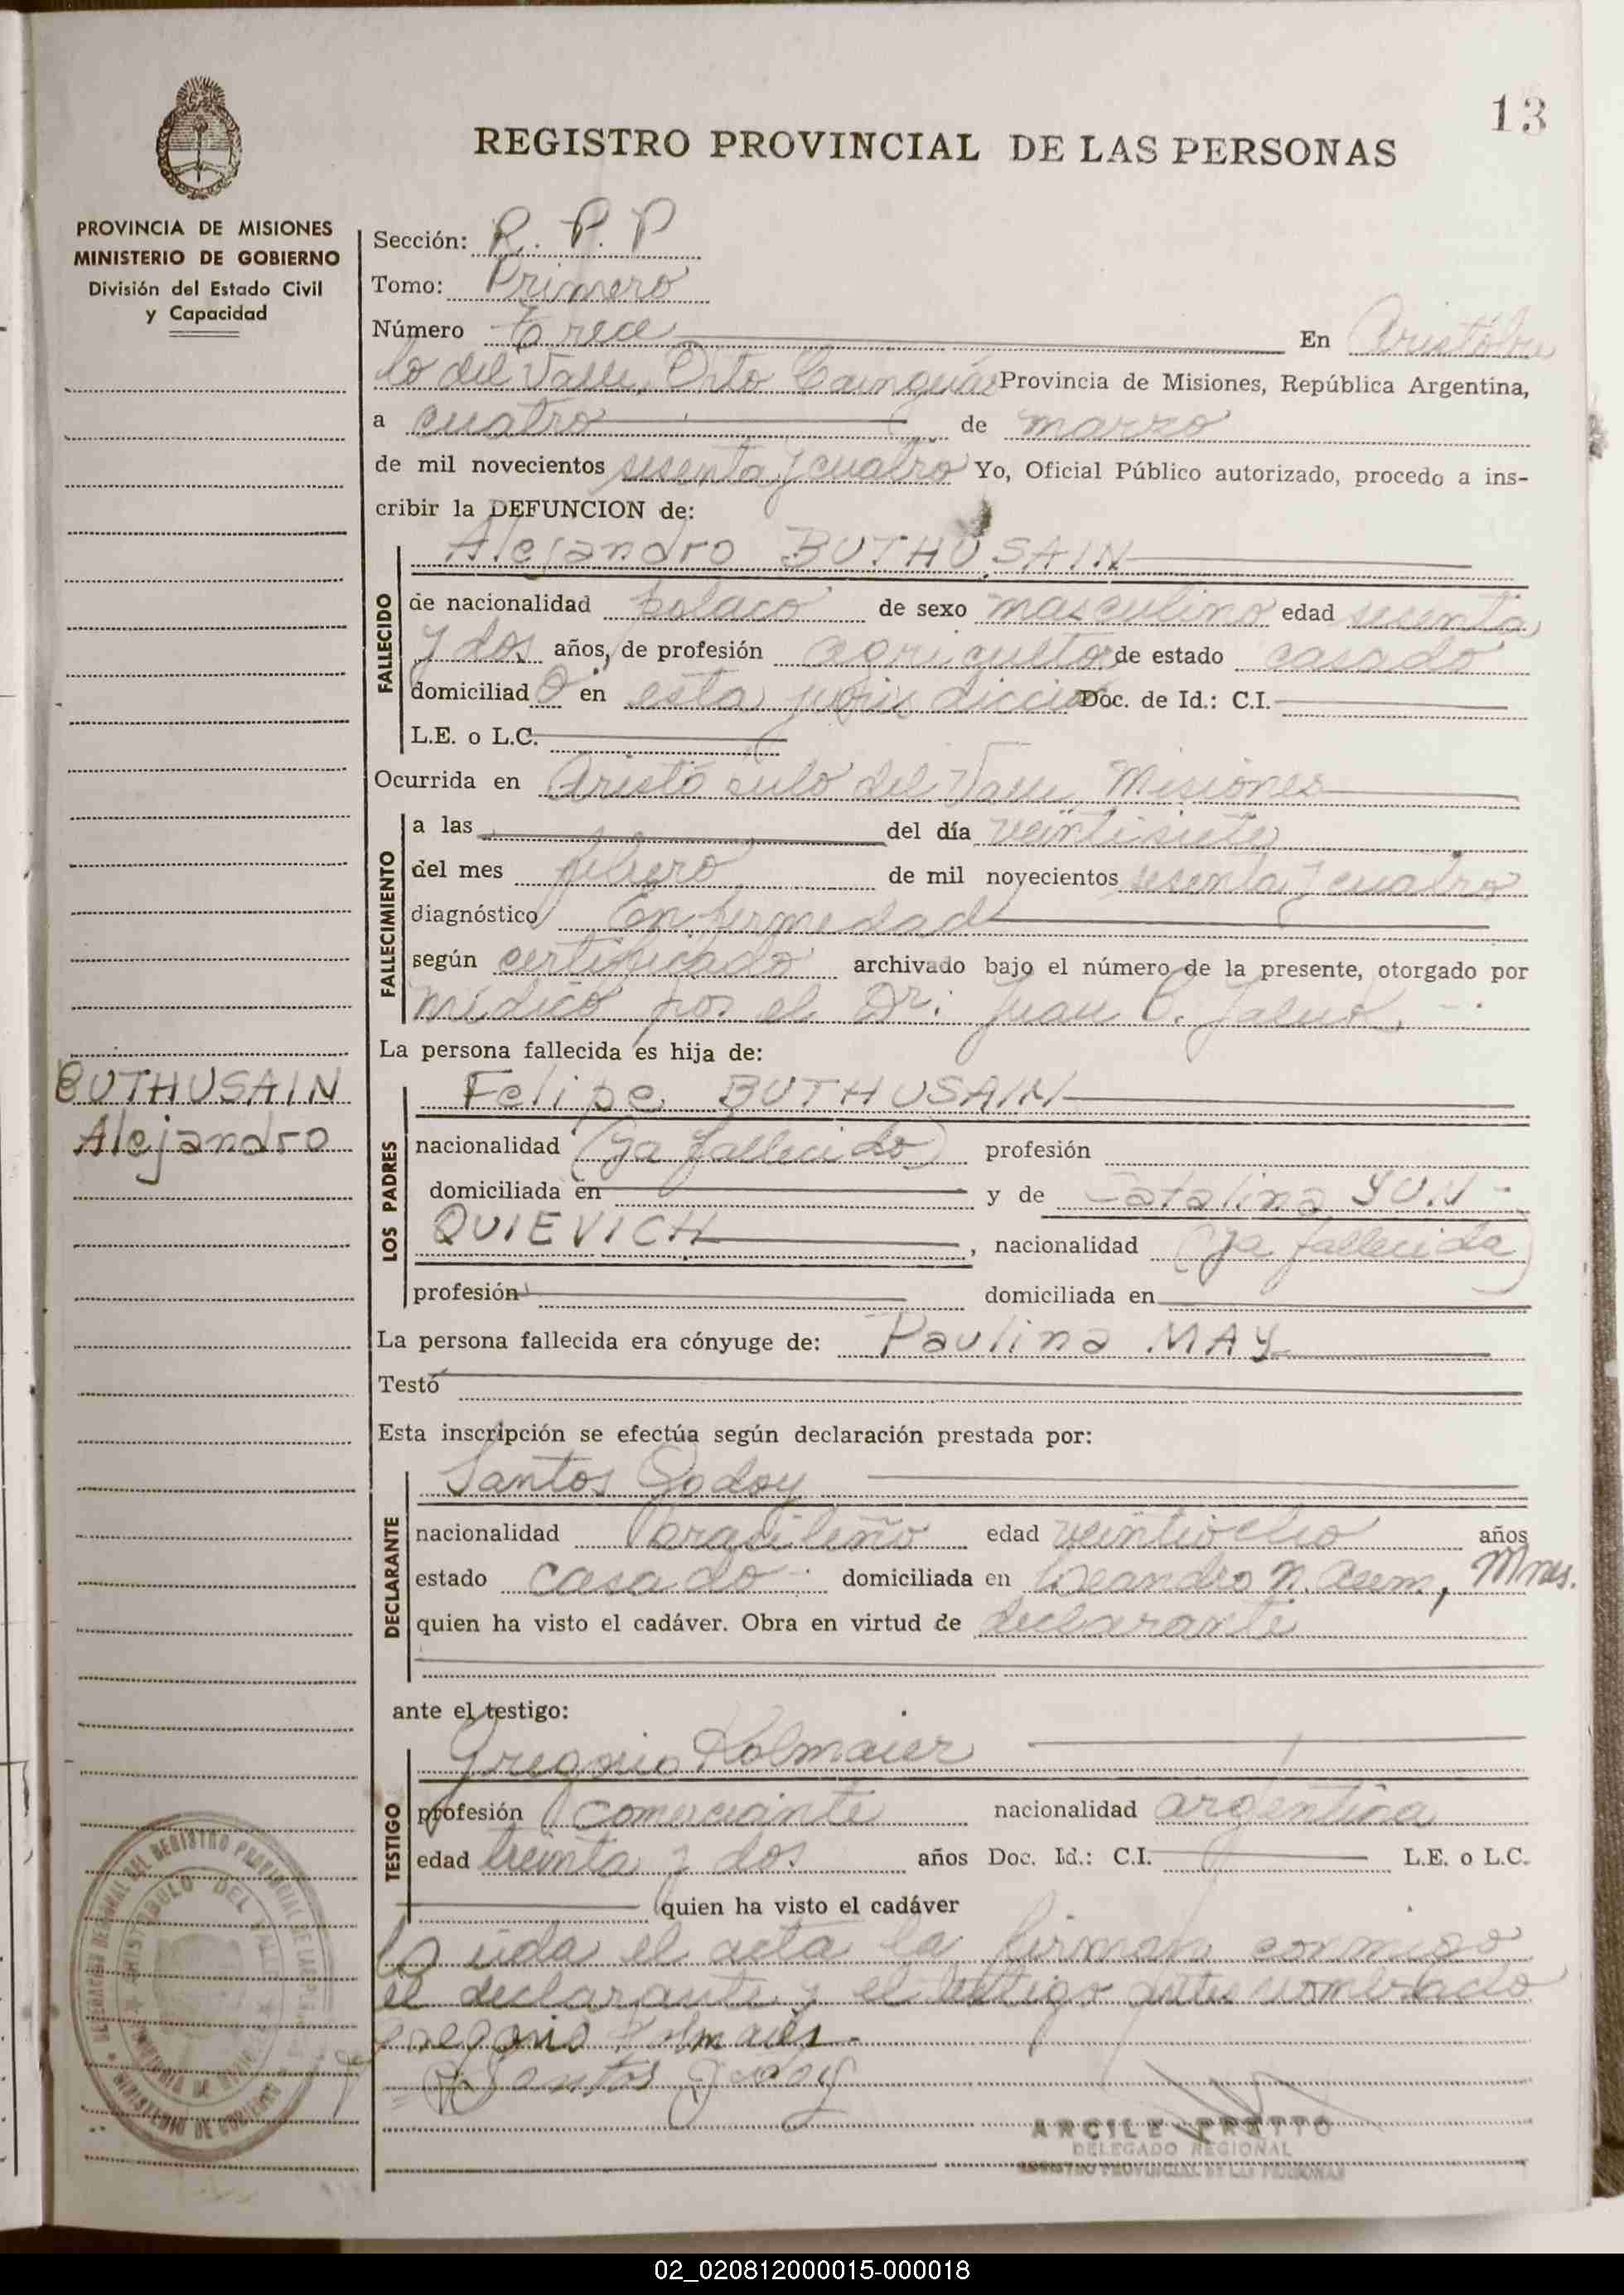 13
REGISTRO PROVINCIAL DE LAS PERSONAS
PROVINCIA DE MISIONES
MINISTERIO DE GOBIERNO
División del Estado Civil
y Capacidad
Sección: R. P. P
Tomo: Primero
Número Trece En Aristóbu
lo del Valle, Dto Cainguás Provincia de Misiones, República Argentina,
a cuatro de marzo
de mil novecientos sesenta y cuatro Yo, Oficial Público autorizado, procedo a ins-
cribir la DEFUNCION de:
Alejandro BUTHUSAIN
FALLECIDO
de nacionalidad polaco de sexo masculino edad sesenta
y dos años, de profesión agricultor de estado casado
domiciliad o en esta jurisdicción Doc. de Id.: C.I.
L.E. o L.C.
Ocurrida en Aristóbulo del Valle, Misiones
FALLECIMIENTO
a las del día veintisiete
del mes febrero de mil novecientos sesenta y cuatro
diagnóstico Enfermedad
según certificado archivado bajo el número de la presente, otorgado por
médico por el Dr: Juan C.
La persona fallecida es hija de:
BUTHUSAIN
Alejandro
Felipe BUTHUSAIN
LOS PADRES
nacionalidad (ya fallecido) profesión
domiciliada en y de Catalina YUN-
QUIEVICH, nacionalidad (ya fallecida)
profesión domiciliada en
La persona fallecida era cónyuge de: Paulina MAY
Testó
Esta inscripción se efectúa según declaración prestada por:
Santos Godoy
DECLARANTE
nacionalidad brasileño edad veintiocho años
estado casado domiciliada en Leandro N. Alem, Mnes.
quien ha visto el cadáver. Obra en virtud de declarante
ante el testigo:
Gregorio Kolmaier
TESTIGO
profesión comerciante nacionalidad argentina
edad treinta y dos años Doc. Id.: C.I. L.E. o L.C.
quien ha visto el cadáver
Leída el acta la firman conmigo
el declarante y el testigo antes nombrado
Gregorio Kolmaier
Santos Godoy
DELEGACION REGIONAL DEL REGISTRO PROVINCIAL DE LAS PERSONAS
ARISTOBULO DEL VALLE
MINISTERIO DE GOBIERNO
ARCILE PRETTO
DELEGADO REGIONAL
REGISTRO PROVINCIAL DE LAS PERSONAS
02_020812000015-000018